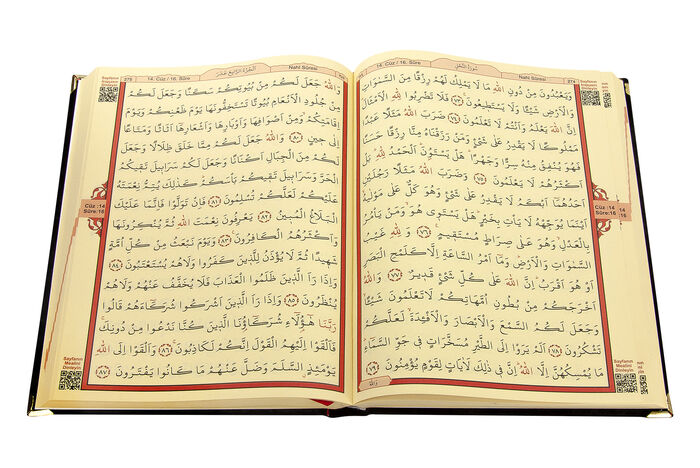 274
Nahl Sûresi
سُورَةُ النَّحْلِ
وَيَعْبُدُونَ مِنْ دُونِ اللّٰهِ مَا لَا يَمْلِكُ لَهُمْ رِزْقًا مِنَ السَّمٰوَاتِ
وَالْاَرْضِ شَيْـًٔا وَلَا يَسْتَطِيعُونَ ﴿٧٣﴾ فَلَا تَضْرِبُوا لِلّٰهِ الْاَمْثَالَ
اِنَّ اللّٰهَ يَعْلَمُ وَاَنْتُمْ لَا تَعْلَمُونَ ﴿٧٤﴾ ضَرَبَ اللّٰهُ مَثَلًا عَبْدًا
مَمْلُوكًا لَا يَقْدِرُ عَلٰى شَيْءٍ وَمَنْ رَزَقْنَاهُ مِنَّا رِزْقًا حَسَنًا
فَهُوَ يُنْفِقُ مِنْهُ سِرًّا وَجَهْرًا هَلْ يَسْتَوُونَ الْحَمْدُ لِلّٰهِ بَلْ
اَكْثَرُهُمْ لَا يَعْلَمُونَ ﴿٧٥﴾ وَضَرَبَ اللّٰهُ مَثَلًا رَجُلَيْنِ
اَحَدُهُمَا اَبْكَمُ لَا يَقْدِرُ عَلٰى شَيْءٍ وَهُوَ كَلٌّ عَلٰى مَوْلٰيهُ
اَيْنَمَا يُوَجِّهْهُ لَا يَأْتِ بِخَيْرٍ هَلْ يَسْتَوِي هُوَ وَمَنْ يَأْمُرُ
بِالْعَدْلِ وَهُوَ عَلٰى صِرَاطٍ مُسْتَقِيمٍ ﴿٧٦﴾ وَلِلّٰهِ غَيْبُ
السَّمٰوَاتِ وَالْاَرْضِ وَمَا اَمْرُ السَّاعَةِ اِلَّا كَلَمْحِ الْبَصَرِ
اَوْ هُوَ اَقْرَبُ اِنَّ اللّٰهَ عَلٰى كُلِّ شَيْءٍ قَدِيرٌ ﴿٧٧﴾ وَاللّٰهُ
اَخْرَجَكُمْ مِنْ بُطُونِ اُمَّهَاتِكُمْ لَا تَعْلَمُونَ شَيْـًٔا
وَجَعَلَ لَكُمُ السَّمْعَ وَالْاَبْصَارَ وَالْاَفْـِٔدَةَ لَعَلَّكُمْ
تَشْكُرُونَ ﴿٧٨﴾ اَلَمْ يَرَوْا اِلَى الطَّيْرِ مُسَخَّرَاتٍ فِي جَوِّ السَّمَاءِ
مَا يُمْسِكُهُنَّ اِلَّا اللّٰهُ اِنَّ فِي ذٰلِكَ لَاٰيَاتٍ لِقَوْمٍ يُؤْمِنُونَ ﴿٧٩﴾
وَاللّٰهُ
Cüz :14
Sûre:16
Sayfanın
Mealini
Dinleyin
275
14. Cüz / 16. Sûre
اَلْجُزْءُ الرَّابِعُ عَشَرَ
Nahl Sûresi
وَاللّٰهُ جَعَلَ لَكُمْ مِنْ بُيُوتِكُمْ سَكَنًا وَجَعَلَ لَكُمْ
مِنْ جُلُودِ الْاَنْعَامِ بُيُوتًا تَسْتَخِفُّونَهَا يَوْمَ ظَعْنِكُمْ وَيَوْمَ
اِقَامَتِكُمْ وَمِنْ اَصْوَافِهَا وَاَوْبَارِهَا وَاَشْعَارِهَا اَثَاثًا وَمَتَاعًا
اِلٰى حِينٍ ﴿٨٠﴾ وَاللّٰهُ جَعَلَ لَكُمْ مِمَّا خَلَقَ ظِلَالًا وَجَعَلَ
لَكُمْ مِنَ الْجِبَالِ اَكْنَانًا وَجَعَلَ لَكُمْ سَرَابِيلَ تَقِيكُمُ
الْحَرَّ وَسَرَابِيلَ تَقِيكُمْ بَأْسَكُمْ كَذٰلِكَ يُتِمُّ نِعْمَتَهُ
عَلَيْكُمْ لَعَلَّكُمْ تُسْلِمُونَ ﴿٨١﴾ فَاِنْ تَوَلَّوْا فَاِنَّمَا عَلَيْكَ
الْبَلَاغُ الْمُبِينُ ﴿٨٢﴾ يَعْرِفُونَ نِعْمَتَ اللّٰهِ ثُمَّ يُنْكِرُونَهَا
وَاَكْثَرُهُمُ الْكَافِرُونَ ﴿٨٣﴾ وَيَوْمَ نَبْعَثُ مِنْ كُلِّ اُمَّةٍ
شَهِيدًا ثُمَّ لَا يُؤْذَنُ لِلَّذِينَ كَفَرُوا وَلَا هُمْ يُسْتَعْتَبُونَ ﴿٨٤﴾
وَاِذَا رَاَ الَّذِينَ ظَلَمُوا الْعَذَابَ فَلَا يُخَفَّفُ عَنْهُمْ وَلَا هُمْ
يُنْظَرُونَ ﴿٨٥﴾ وَاِذَا رَاَ الَّذِينَ اَشْرَكُوا شُرَكَاءَهُمْ قَالُوا
رَبَّنَا هٰؤُلَاءِ شُرَكَاؤُنَا الَّذِينَ كُنَّا نَدْعُوا مِنْ دُونِكَ
فَاَلْقَوْا اِلَيْهِمُ الْقَوْلَ اِنَّكُمْ لَكَاذِبُونَ ﴿٨٦﴾ وَاَلْقَوْا اِلَى اللّٰهِ
يَوْمَئِذٍ السَّلَمَ وَضَلَّ عَنْهُمْ مَا كَانُوا يَفْتَرُونَ ﴿٨٧﴾
Cüz :14
Sûre:16
Sayfanın
Mealini
Dinleyin